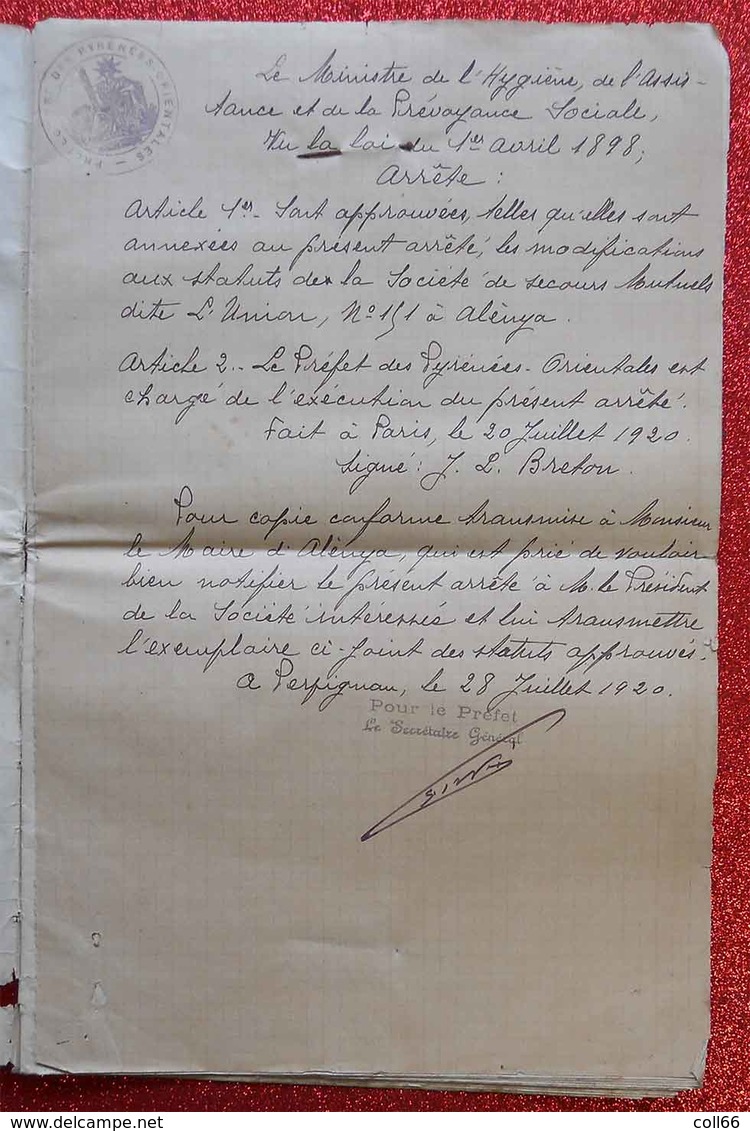 DES PYRENEES ORIENTALES
Le Ministre de l'Hygiène, de l'Assis-
tance et de la Prévoyance Sociale,
Vu la loi du 1er avril 1898,
Arrête :
Article 1er. Sont approuvées, telles qu'elles sont
annexées au présent arrêté, les modifications
aux statuts de la Société de secours Mutuels
dite L'Union, No 151 à Alénya.
Article 2. - Le Préfet des Pyrénées-Orientales est
chargé de l'exécution du présent arrêté.
Fait à Paris, le 20 Juillet 1920.
Signé : J. L. Breton.
Pour copie conforme transmise à Monsieur
le Maire d'Alénya, qui est prié de vouloir
bien notifier le présent arrêté à M. le Président
de la Société intéressée et lui transmettre
l'exemplaire ci-joint des statuts approuvés.
A Perpignan, le 28 Juillet 1920.
Pour le Préfet
Le Secrétaire Général
delcampe.net
coll66